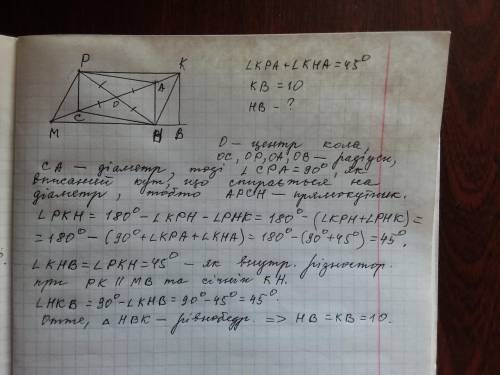 P K
A
O
C
M H B
∠KPA + ∠KHA = 45°
KB = 10
HB - ?
O - центр кола,
OC, OP, OA, OB - радіуси,
CA - діаметр, тоді ∠CPA = 90°, як
вписаний кут, що спирається на
діаметр, тобто APCH - прямокутник.
∠PKH = 180° - ∠KPH - ∠PHK = 180° - (∠KPH + ∠PHK) =
= 180° - (90° + ∠KPA + ∠KHA) = 180° - (90° + 45°) = 45°.
∠KHB = ∠PKH = 45° - як внутр. різностор.
при PK || MB та січній KH.
∠HKB = 90° - ∠KHB = 90° - 45° = 45°.
Отже, △HBK - рівнобедр. => HB = KB = 10.